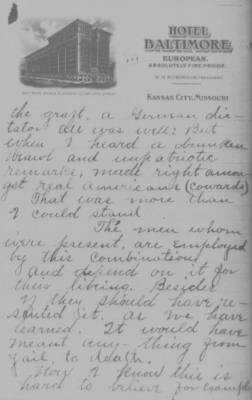 HOTEL
BALTIMORE
EUROPEAN.
ABSOLUTELY FIRE PROOF.
KANSAS CITY, MISSOURI
the graft, a German dic-
tator. All was well: But
when I heard a drunken
brawl and unpatriotic
remarks, made right amon-
gst real Americans (cowards)
That was more than
I could stand.
The men whom
were present, are employed
by this combination,
and depend on it for
their living. Besides
if they should have re-
sented it. as we have
learned. It would have
meant any-thing from
jail, to death.
Now I know this is
hard to believe for example